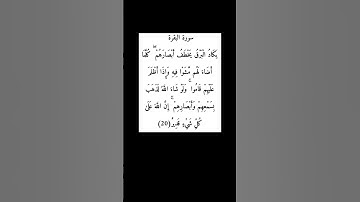 سورة البقرة
يَكَادُ الْبَرْقُ يَخْطَفُ أَبْصَارَهُمْ ۖ كُلَّمَا
أَضَاءَ لَهُم مَّشَوْا فِيهِ وَإِذَا أَظْلَمَ
عَلَيْهِمْ قَامُوا ۚ وَلَوْ شَاءَ اللَّهُ لَذَهَبَ
بِسَمْعِهِمْ وَأَبْصَارِهِمْ ۚ إِنَّ اللَّهَ عَلَىٰ
كُلِّ شَيْءٍ قَدِيرٌ (20)